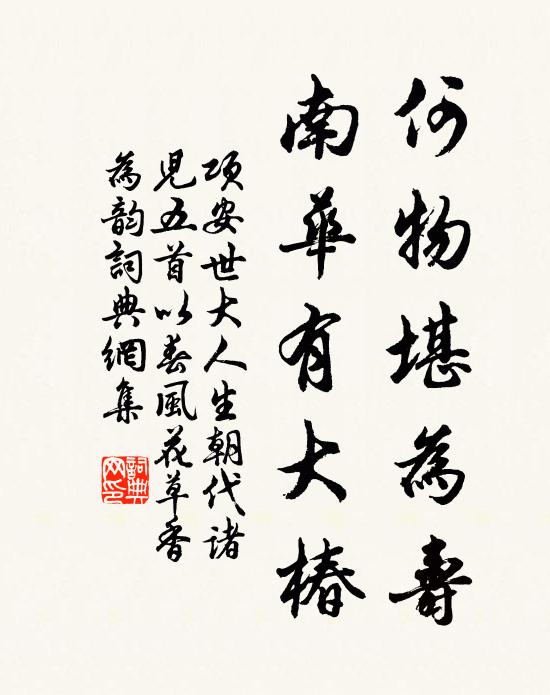 何物堪為壽
南華有大椿
項安世大人生朝代諸
兒五首以春風花草香
為韵詞典網集
詞典网印